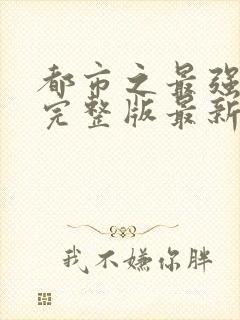 都市之最强
完整版最新
我不嫌你胖